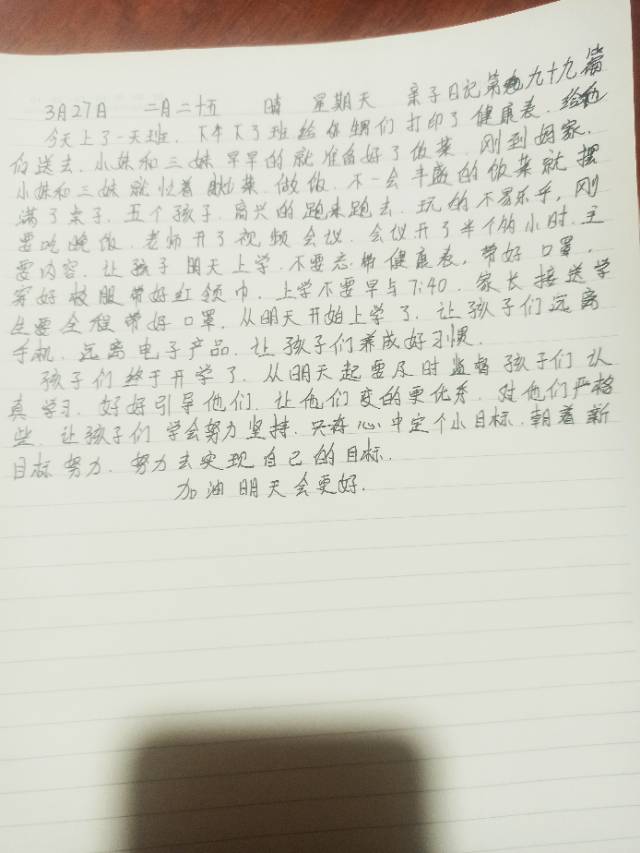 3月27日 二月二十五 晴 星期天 亲子日记第九十九篇
今天上了一天班.下午下了班给你辆们打印了健康表.给他
们送去.小妹和三妹早早的就准备好了做菜.刚到妈家.
小妹和三妹就忙着做菜.做饭.不一会丰盛的饭菜就摆
满了桌子.五个孩子.高兴的跑来跑去.玩的不易乐乎.刚
要吃晚饭.老师开了视频会议.会议开了半个的小时.主
要内容.让孩子明天上学.不要忘带健康表,带好口罩.
穿好校服带好红领巾.上学不要早与7:40.家长接送学
生要全程带好口罩.从明天开始上学了.让孩子们远离
手机.远离电子产品.让孩子们养成好习惯.
孩子们终于开学了.从明天起要及时监督孩子们认
真学习.好好引导他们.让他们变的更优秀.对他们严格
些.让孩子们学会努力坚持.心中定个小目标.朝着新
目标努力.努力去实现自己的目标.
加油明天会更好.